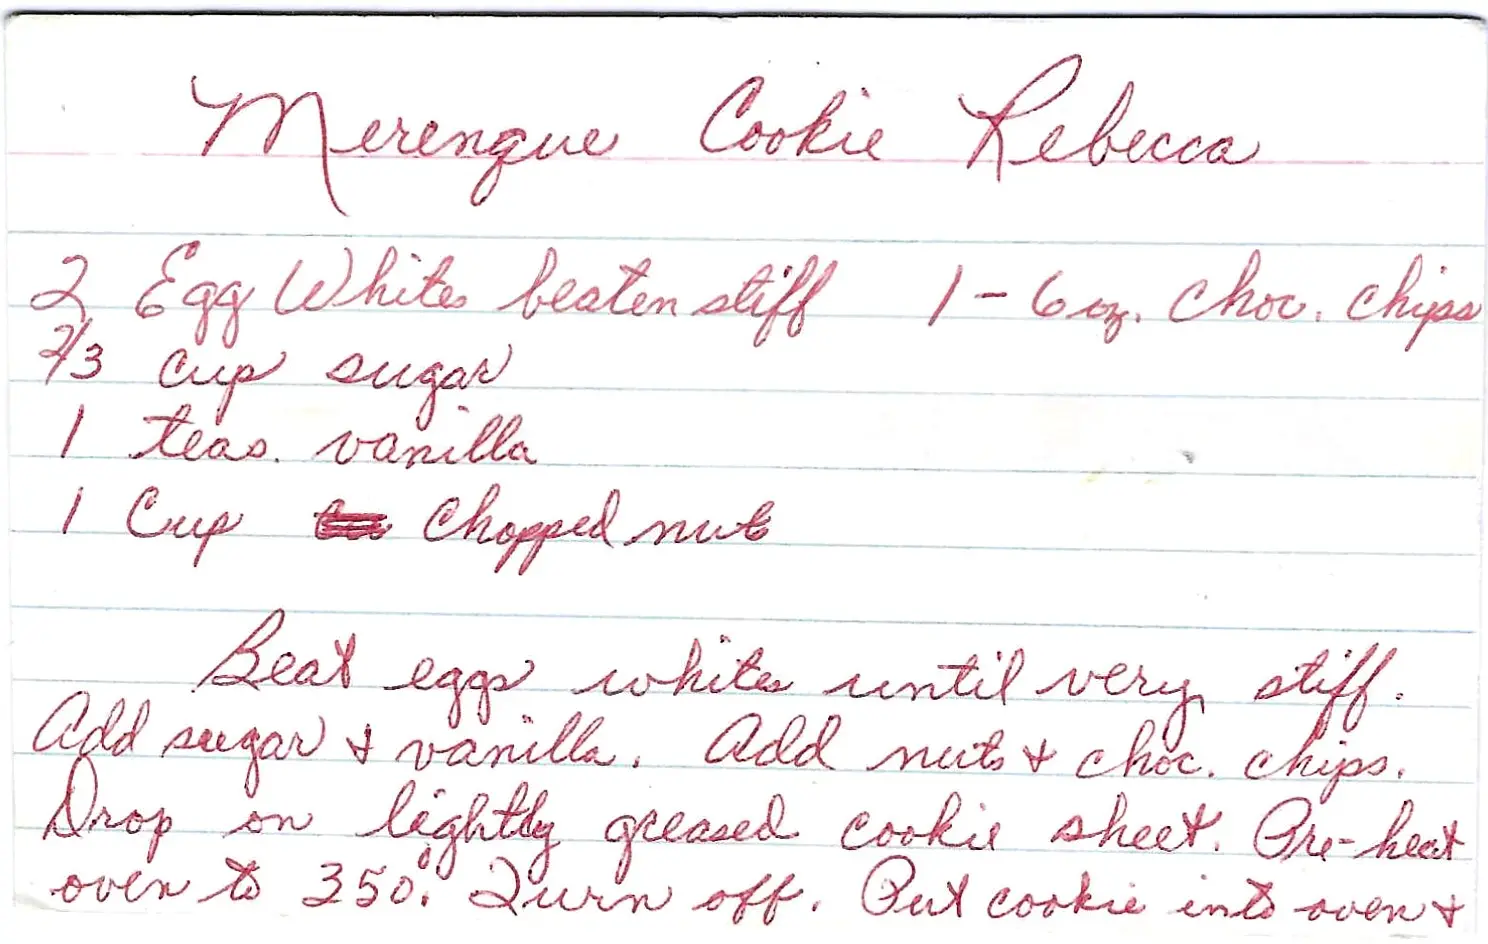 Merengue Cookie Rebecca
2 Egg Whites beaten stiff 1 - 6 oz. choc. chips
2/3 cup sugar
1 teas. vanilla
1 Cup chopped nuts
Beat eggs whites until very stiff.
Add sugar & vanilla. Add nuts & choc. chips.
Drop on lightly greased cookie sheet. Pre-heat
oven to 350°. Turn off. Put cookie into oven &